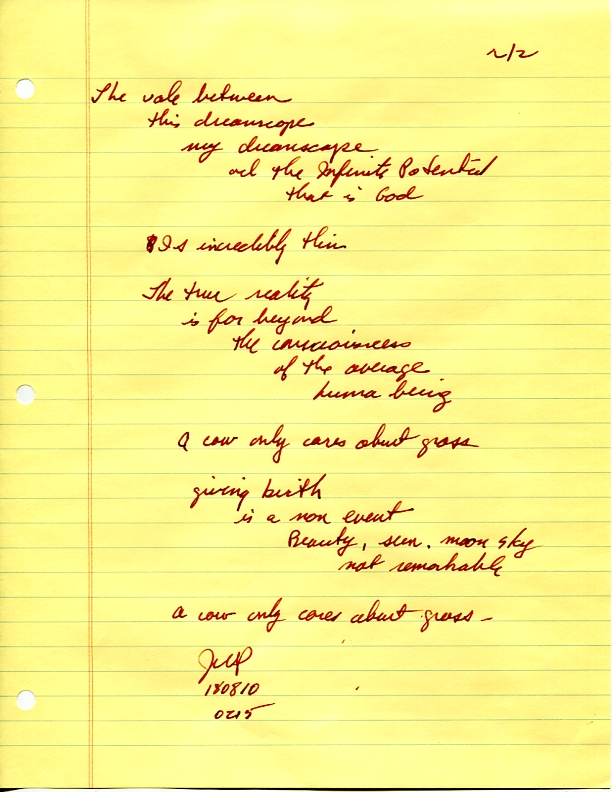 2/2
The vale between
this dreamscape
my dreamscape
and the Infinite Potential
that is God
Is incredibly thin
The true reality
is far beyond
the consciousness
of the average
huma being
A cow only cares about grass
giving birth
is a non event
Beauty, sun, moon sky
not remarkable
a cow only cares about grass -
180810
0215